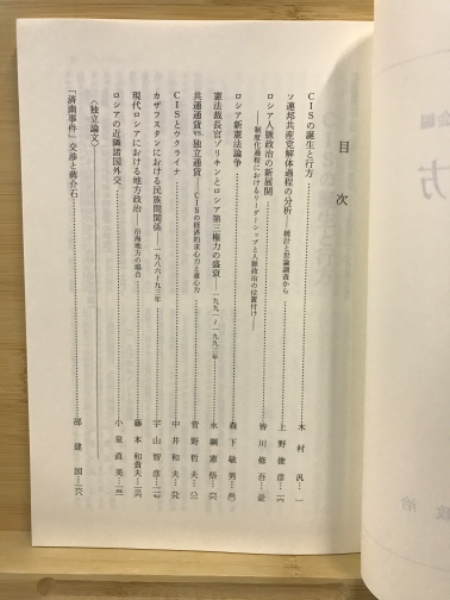 目次
CISの誕生と行方……木村汎…一
ソ連邦共産党解体過程の分析──統計と世論調査から……上野俊彦…一六
ロシア人脈政治の新展開
──制度化過程におけるリーダーシップと人脈政治の位置付け──……皆川修吾
ロシア新憲法論争……森下敏男
憲法裁長官ゾリキンとロシア第三権力の盛衰──一九九一~一九九三年……永綱憲悟
共通通貨vs.独立通貨──CISの経済的求心力と遠心力……菅野哲夫
CISとウクライナ……中井和夫
カザフスタンにおける民族間関係──一九八六~九三年……宇山智彦
現代ロシアにおける地方政治──沿海地方の場合……藤本和貴夫
ロシアの近隣諸国外交……小泉直美
〈独立論文〉
「済南事件」交渉と蔣介石……邵建国
会編
方
政治